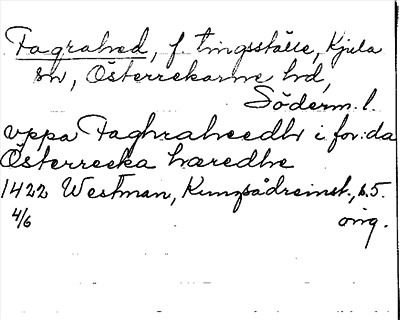 Fagrahed, f. tingsställe, Kjula
sn, Österrekarne hd,
Söderm. l.
vppa Faghraheedh i for:da
Österrecka hæredhe
1422 Westman, s. 5.
4/6 orig.